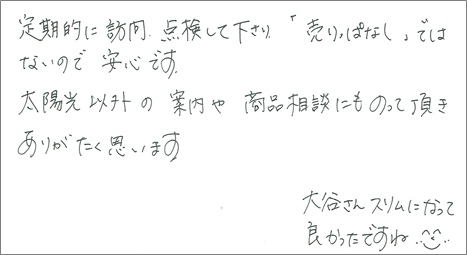 定期的に訪問、点検して下さり、「売りっぱなし」では
ないので安心です。
太陽光以外の案内や商品相談にものって頂き
ありがたく思います
大谷さんスリムになって
良かったですね